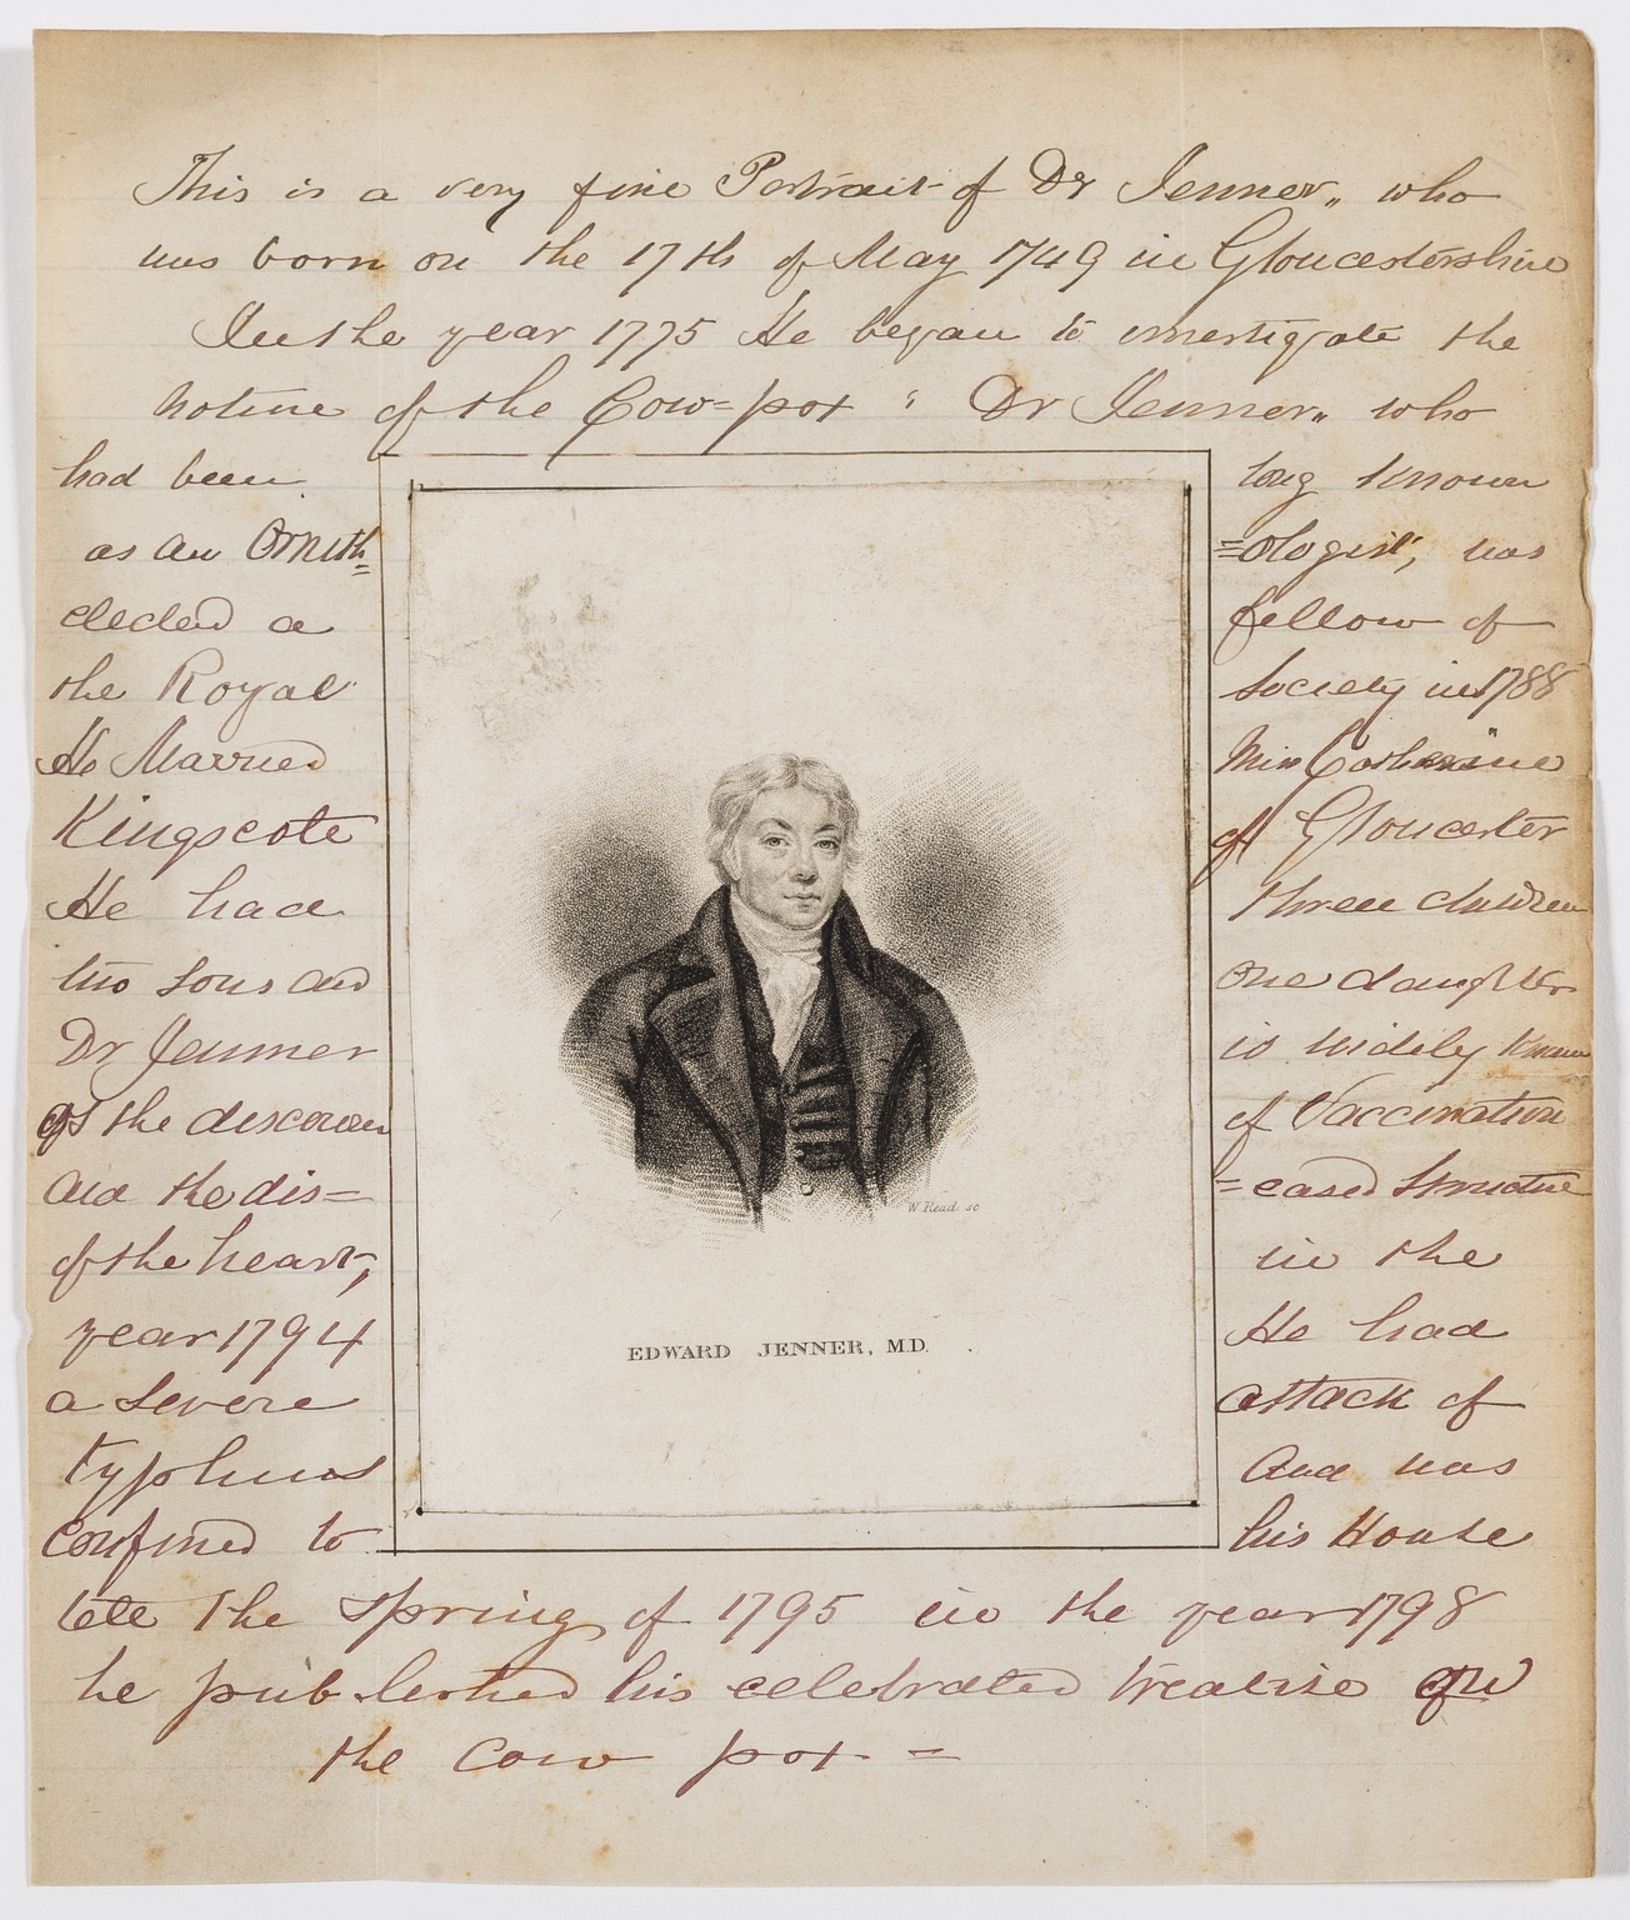 This is a very fine Portrait of Dr Jenner,, who
was born on the 17th of May 1749 in Gloucestershire
In the year 1775 He began to investigate the
nature of the Cow=pox " Dr Jenner,, who
had been long known
as an Ornith= =ologist, was
elected a fellow of
the Royal Society in 1788
He Married Miss Catherine
Kingscote of Gloucester
He had three children
two sons and one daughter
Dr Jenner is widely known
as the discoverer of Vaccination
and the dis= =eased structure
of the heart, in the
year 1794 He had
a severe attack of
typhus and was
confined to his House
W Read sc
EDWARD JENNER, M.D.
late the spring of 1795 in the year 1798
he published his celebrated treatise on
the cow pox =